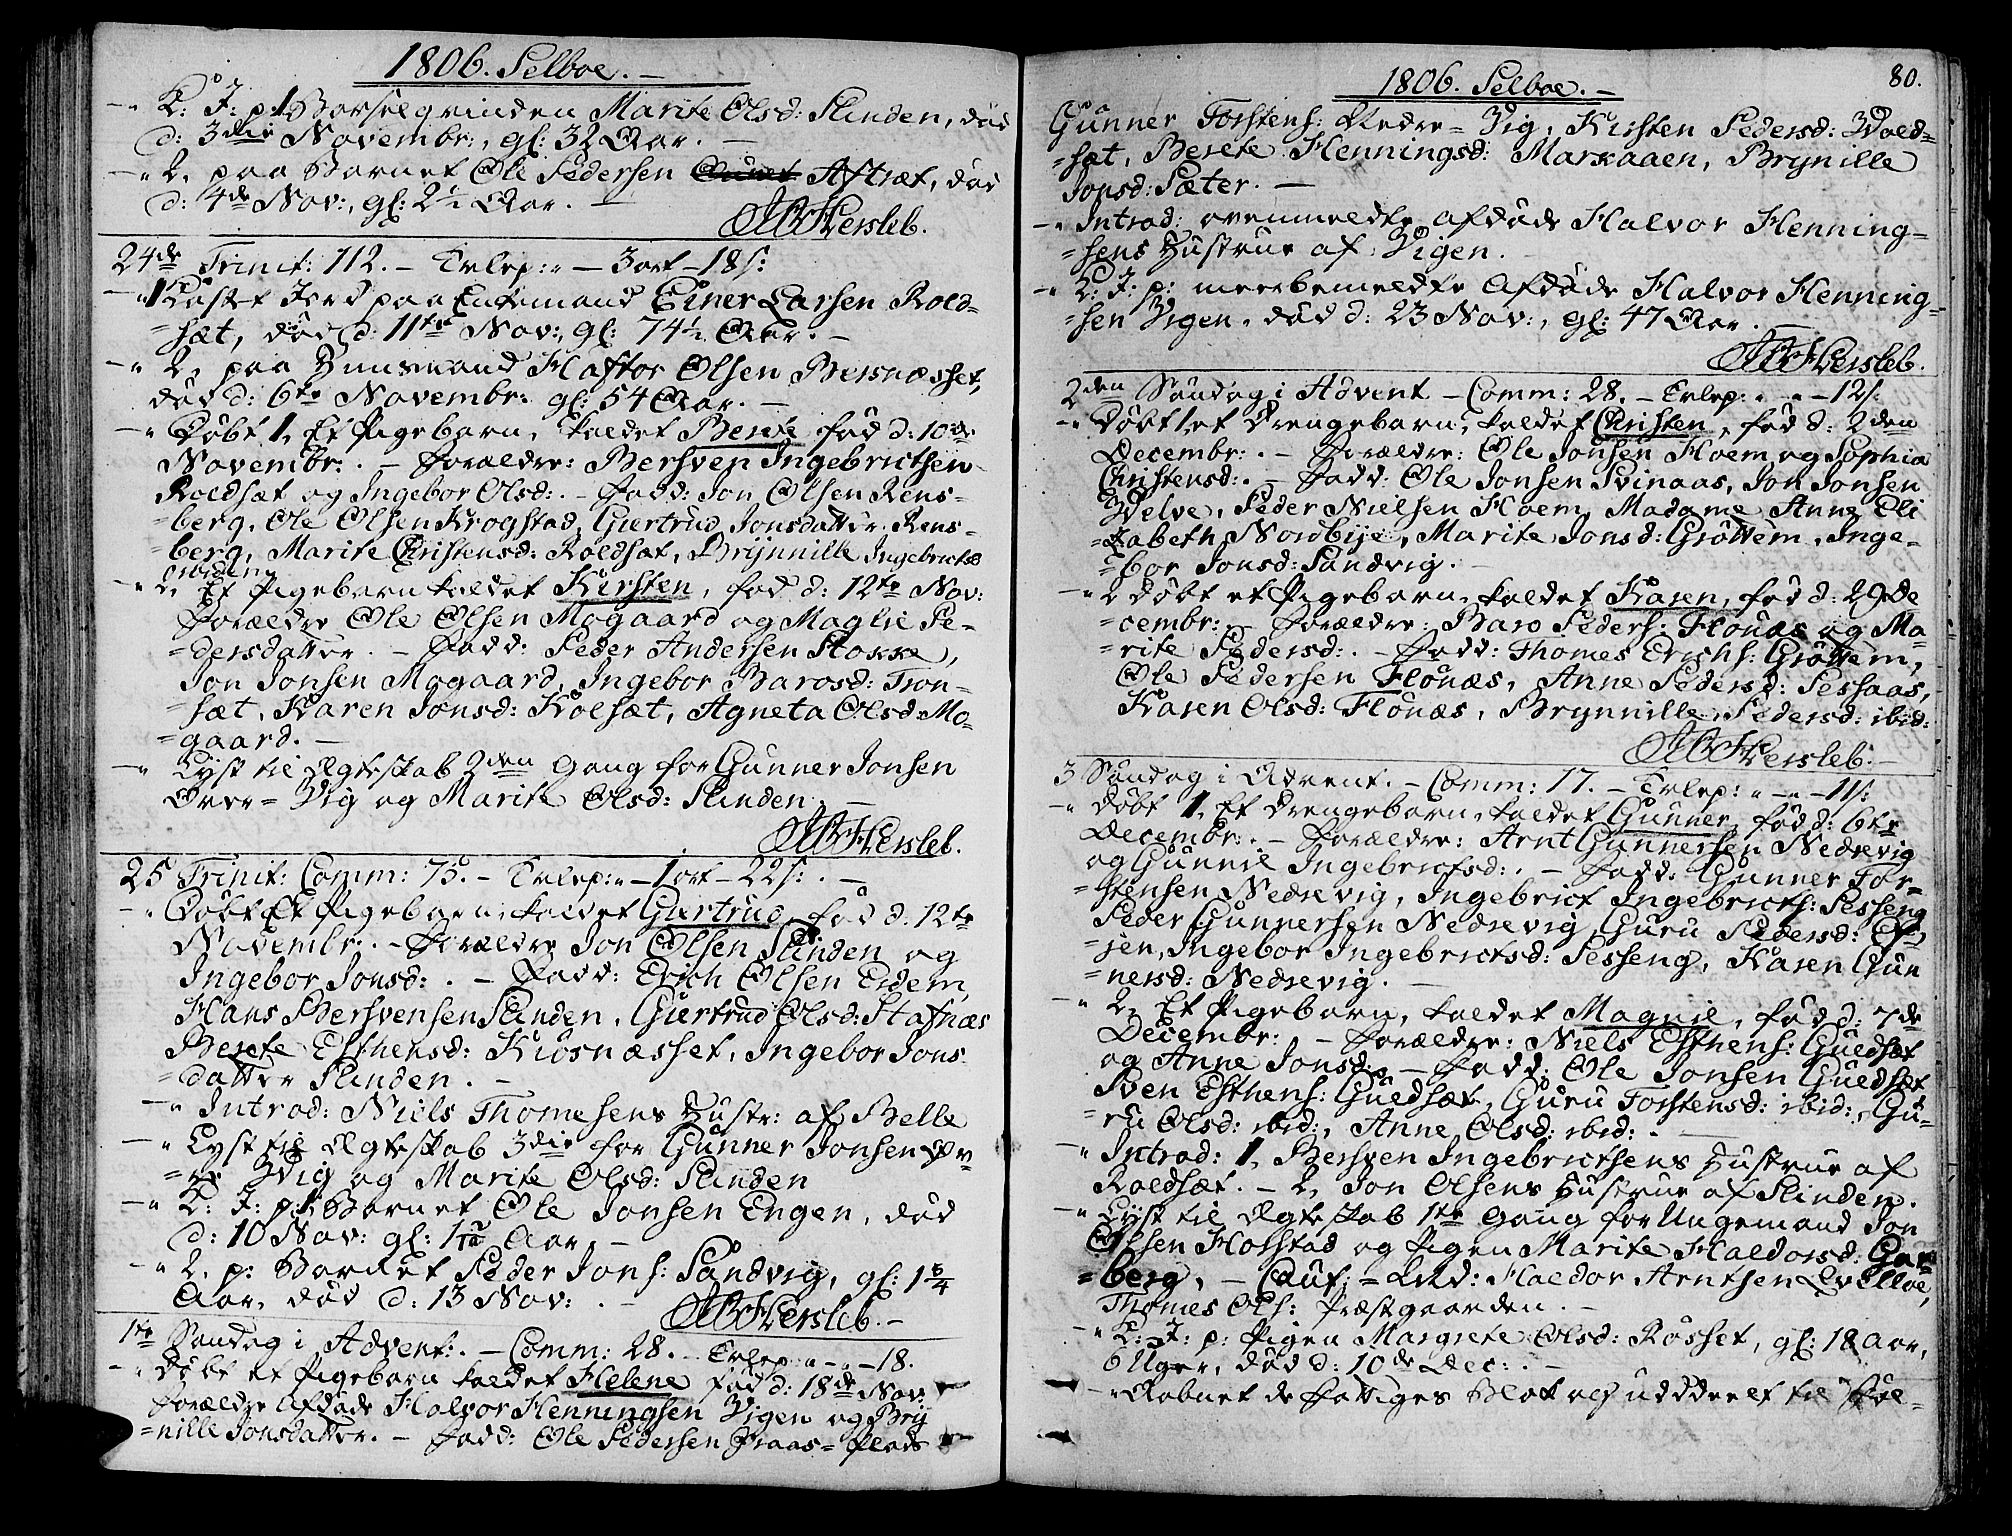 1806. Selboe. –
–" K: J: p: 1 Barselqvinden Marite Olsd: Slinden, død
d: 3die Novembr:, gl: 32 Aar. –
–" 2, paa Barnet Ole Pedersen Aftræt, død
d: 4de Nov:, gl: 2½ Aar. –
Hersleb.
24de Trinit: 112. – Erlep: " – 3 ort – 18 s:
–" 1 Kastet Jord paa Enkemand Einer Larsen Rold-
=sæt, død d: 11te Nov:, gl: 74½ Aar. –
–" 2, paa Huusmand Haftor Olsen Bersnæsset,
død d: 6te Novembr: gl: 54 Aar. –
–" Døbt 1, Et Pigebarn, kaldet Beret fød d: 10de
Novembr: . – Forældre: Bersven Ingebrictsen
Roldsæt og Ingebor Olsd: . – Fadd: Jon Olsen Rens-
=berg, Ole Olsen Krogstad, Giertrud Jonsdatter Rens-
=berg, Marite Christensd: Roldsæt, Brynnille Ingebrictsd
ibidem
–" 2, Et Pigebarn kaldet Kirsten, fød d: 12te Nov:
Forældre Ole Olsen Mogaard og Maglie Pe-
=dersdatter. – Fadd: Peder Andersen Stokke,
Jon Jonsen Mogaard, Ingebor Barosd: Tron-
=sæt, Karen Jonsd: Kolsæt, Agneta Olsd: Mo-
=gaard. –
–" Lyst til Ægteskab 2den Gang for Gunner Jonsen
Over=Vig og Marite Olsd: Slinden. –
Hersleb.
25 Trinit: Comm: 75. – Erlep: " – 1 ort – 22 s: . –
–" Døbt Et Pigebarn, kaldet Giertrud, fød d: 12te
Novembr: . – Forældre Jon Olsen Slinden og
Ingebor Jonsd: . – Fadd: Erich Olsen Erdem,
Hans Bersvensen Slinden, Giertrud Olsd: Stafnæs
Berete Esthensd: Kiøsnæsset, Ingebor Jons-
=datter Slinden. –
–" Introd: Niels Thomesens Hustr: af Belle
–" Lyst til Ægteskab 3die for Gunner Jonsen Ov-
=er Vig og Marite Olsd: Slinden
–" K: J: p: 1 Barnet Ole Jonsen Engen, død
d: 10 Nov: gl: 1 Aar. –
–" 2, p: Barnet Peder Jons: Sandvig, gl: 1¾
Aar, død d: 13 Nov: . –
Hersleb. –
1te Søndag i Advent: . – Comm: 28. – Erlep: " – " – 18.
–" Døbt et Pigebarn kaldet Helene fød d: 18de Nov:
Forældre Afdøde Halvor Henningsen Vigen og Bry-
=nille Jonsdatter. – Fadd: Ole Pedersen Praas=Plads
80.
1806. Selboe. –
Gunner Torstens: Nedre=Vig, Kirsten Pedersd: Vold-
=sæt, Berete Henningsd: Marxaaen, Brynille
Jonsd: Sæter. –
–" Introd: ovenmeldte afdøde Halvor Henning-
=sens Hustrue af Vigen.
–" K: J: p: meerbemeldte Afdøde Halvor Henning-
=sen Vigen, død d: 23 Nov:, gl: 47 Aar. –
Hersleb.
2den Søndag i Advent – Comm: 28. – Erlep: " – " – 12 s:
–" Døbt 1, et Drengebarn, kaldet Christen, fød d: 2den
Decembr: . – Forældre: Ole Jonsen Hoem og Sophia
Christensd: . – Fadd: Ole Jonsen Svinaas, Jon Jonsen
Velve, Peder Nielsen Hoem, Madame Anne Eli-
=sabeth Nordbye, Marite Jonsd: Grøttem, Inge-
=bor Jonsd: Sandvig. –
–" 2 Døbt et Pigebarn, kaldet Karen, fød d: 29 De
=cembr: . – Forældre: Baro Peders: Flønæs og Ma-
=rite Pedersd: . – Fadd: Thomes Erichs: Grøttem,
Ole Pedersen Flønæs, Anne Pedersd: Sessaas,
Karen Olsd: Flønæs, Brynnille Pedersd: ibid:
Hersleb. –
3 Søndag i Advent. – Comm: 17. – Erlep: " – " – 11 s:
–" Døbt 1, Et Drengebarn, kaldet Gunner, fød d: 6te
Decembr: . – Forældre: Arnt Gunnersen Nedrevig
og Gunnil Ingebrictsd: . – Fadd: Gunner Tor-
=stensen Nedrevig, Ingebrict Ingebricts: Sesseng
Peder Gunnersen Nedrevig, Guru Pedersd: Ef-
=jen, Ingebor Ingebrictsd: Sesseng, Karen Gun
=nersd: Nedrevig. –
–" 2, Et Pigebarn, kaldet Magnil, fød d: 7de
Decembr: – Forældre: Niels Esthens: Guldsæt
og Anne Jonsd: – Fadd: Ole Jonsen Guldsæt
Sven Esthens: Guldsæt, Guru Torstensd: ibid:, Gu-
=ru Olsd: ibid:, Anne Olsd: ibid: . –
–" Introd: 1, Bersven Ingebrictsens Hustrue af
Roldsæt. – 2, Jon Olsens Hustrue af Slinden.
–" Lyst til Ægteskab 1te Gang for Ungemand Jon
Olsen Hofstad og Pigen Marite Haldorsd: Gar-
=berg. – Caut: = Haldor Arntsen Evelloe,
Thomes Ols: Præstgaarden. –
–" K: J: p: Pigen Margrete Olsd: Røsset, gl: 18 Aar,
6 Uger, død d: 10de Dec: . –
–" Aabnet de Fattiges Blok og uddeelt til Føl-